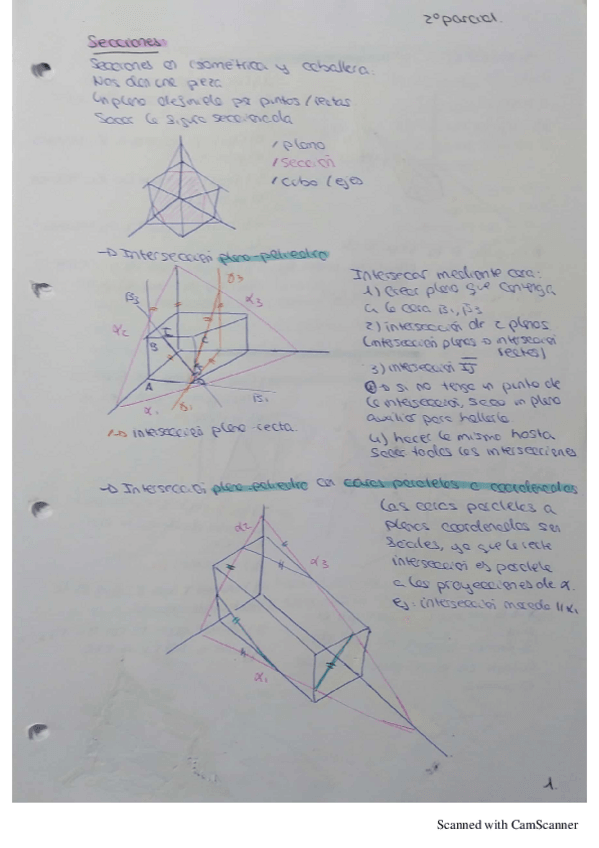 2º parcial.
Secciones
Secciones en isométrica y caballera.
Nos dan una pieza
Un plano definido por puntos/rectas
Sacar la figura seccionada
/ plano
/ sección
/ cubo / ejes
→ Intersección plano-poliedro
Intersecar mediante cara:
1) Crear plano que contenga
a la cara β₁, β₃
2) intersección de 2 planos
(intersección planos o intersección
rectas)
3) intersección IJ
→ si no tengo un punto de
la intersección, saco un plano
auxiliar para hallarlo
4) hacer lo mismo hasta
sacar todas las intersecciones
β₃
γ₃
α₃
α₂
I
B
C
A
J
α₁
γ₁
β₁
→ intersección plano-recta.
→ Intersección plano-poliedro con caras paralelas a coordenadas
Las caras paralelas a
planos coordenados son
fáciles, ya que la recta
intersección es paralela
a las proyecciones de α.
Ej: intersección morada // α₁
α₂
α₃
α₁
1
Scanned with CamScanner